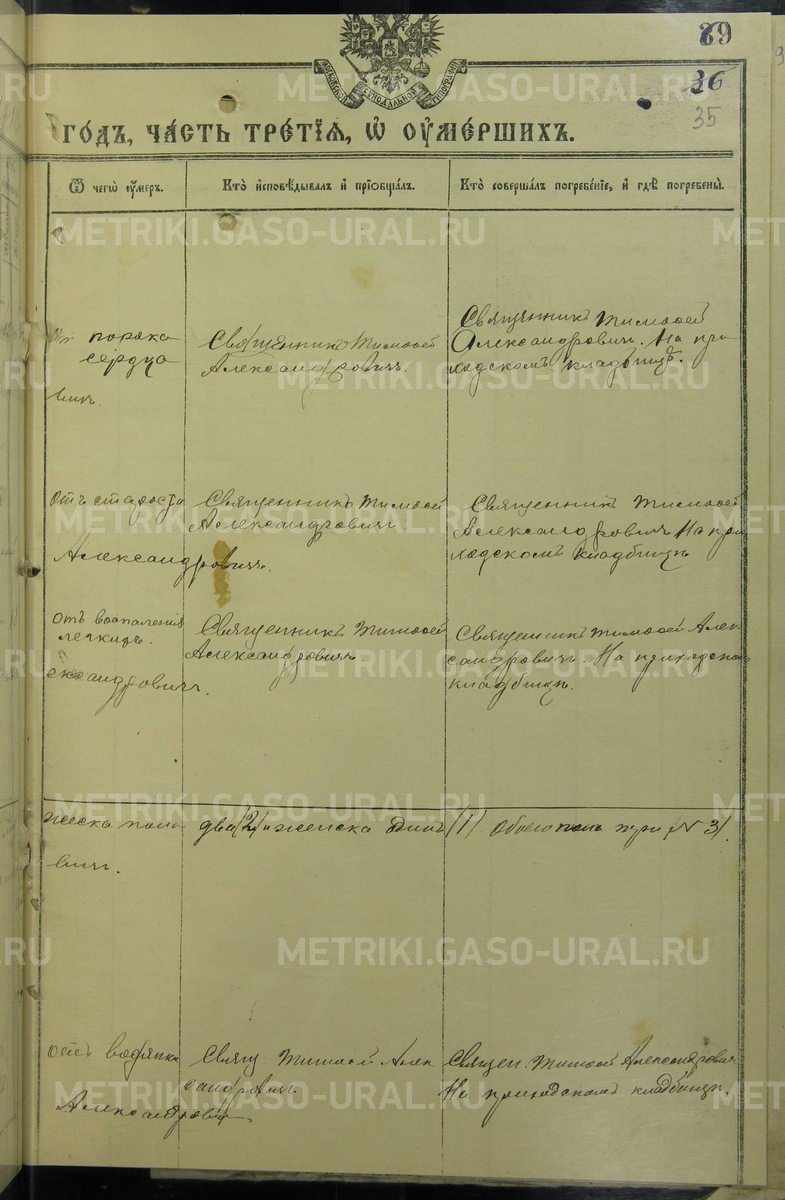 89
36
35
МОСКОВСКОЙ СѴНОДАЛЬНОЙ ТИПОГРАФІИ
ГО́ДЪ, ЧА́СТЬ ТРЕ́ТЇѦ, Ѡ҆ ОУ҆МЕ́РШИХЪ.
Ѿ чегѡ̀ оу҆́меръ.
Кто̀ и҆сповѣ́дывалъ и҆ прїѡбща́лъ.
Кто̀ соверша́лъ погребе́нїе, и҆ гдѣ̀ погребены̀.
От порока
сердца
вичъ.
Священникъ Тимоѳей
Александровичъ.
Священникъ Тимоѳей
Александровичъ. На при
ходскомъ кладбищѣ.
Отъ старости
Александровичъ.
Священникъ Тимоѳей
Александровичъ.
Священникъ Тимоѳей
Александровичъ На при
ходскомъ кладбищѣ
Отъ воспаленія
легкихъ.
ександровичъ.
Священникъ Тимоѳей
Александровичъ.
Священникъ Тимоѳей Алек
сандровичъ. На приходском
кладбищѣ.
жеска пола
два (2) и женска одинъ (1). Обоего пола три (№ 3).
вичъ.
Отъ водянки
Александровичъ
Свящ Тимоѳей Алек
сандровичъ.
Священ. Тимоѳей Александрович
На приходскомъ кладбищѣ.
METRIKI.GASO-URAL.RU